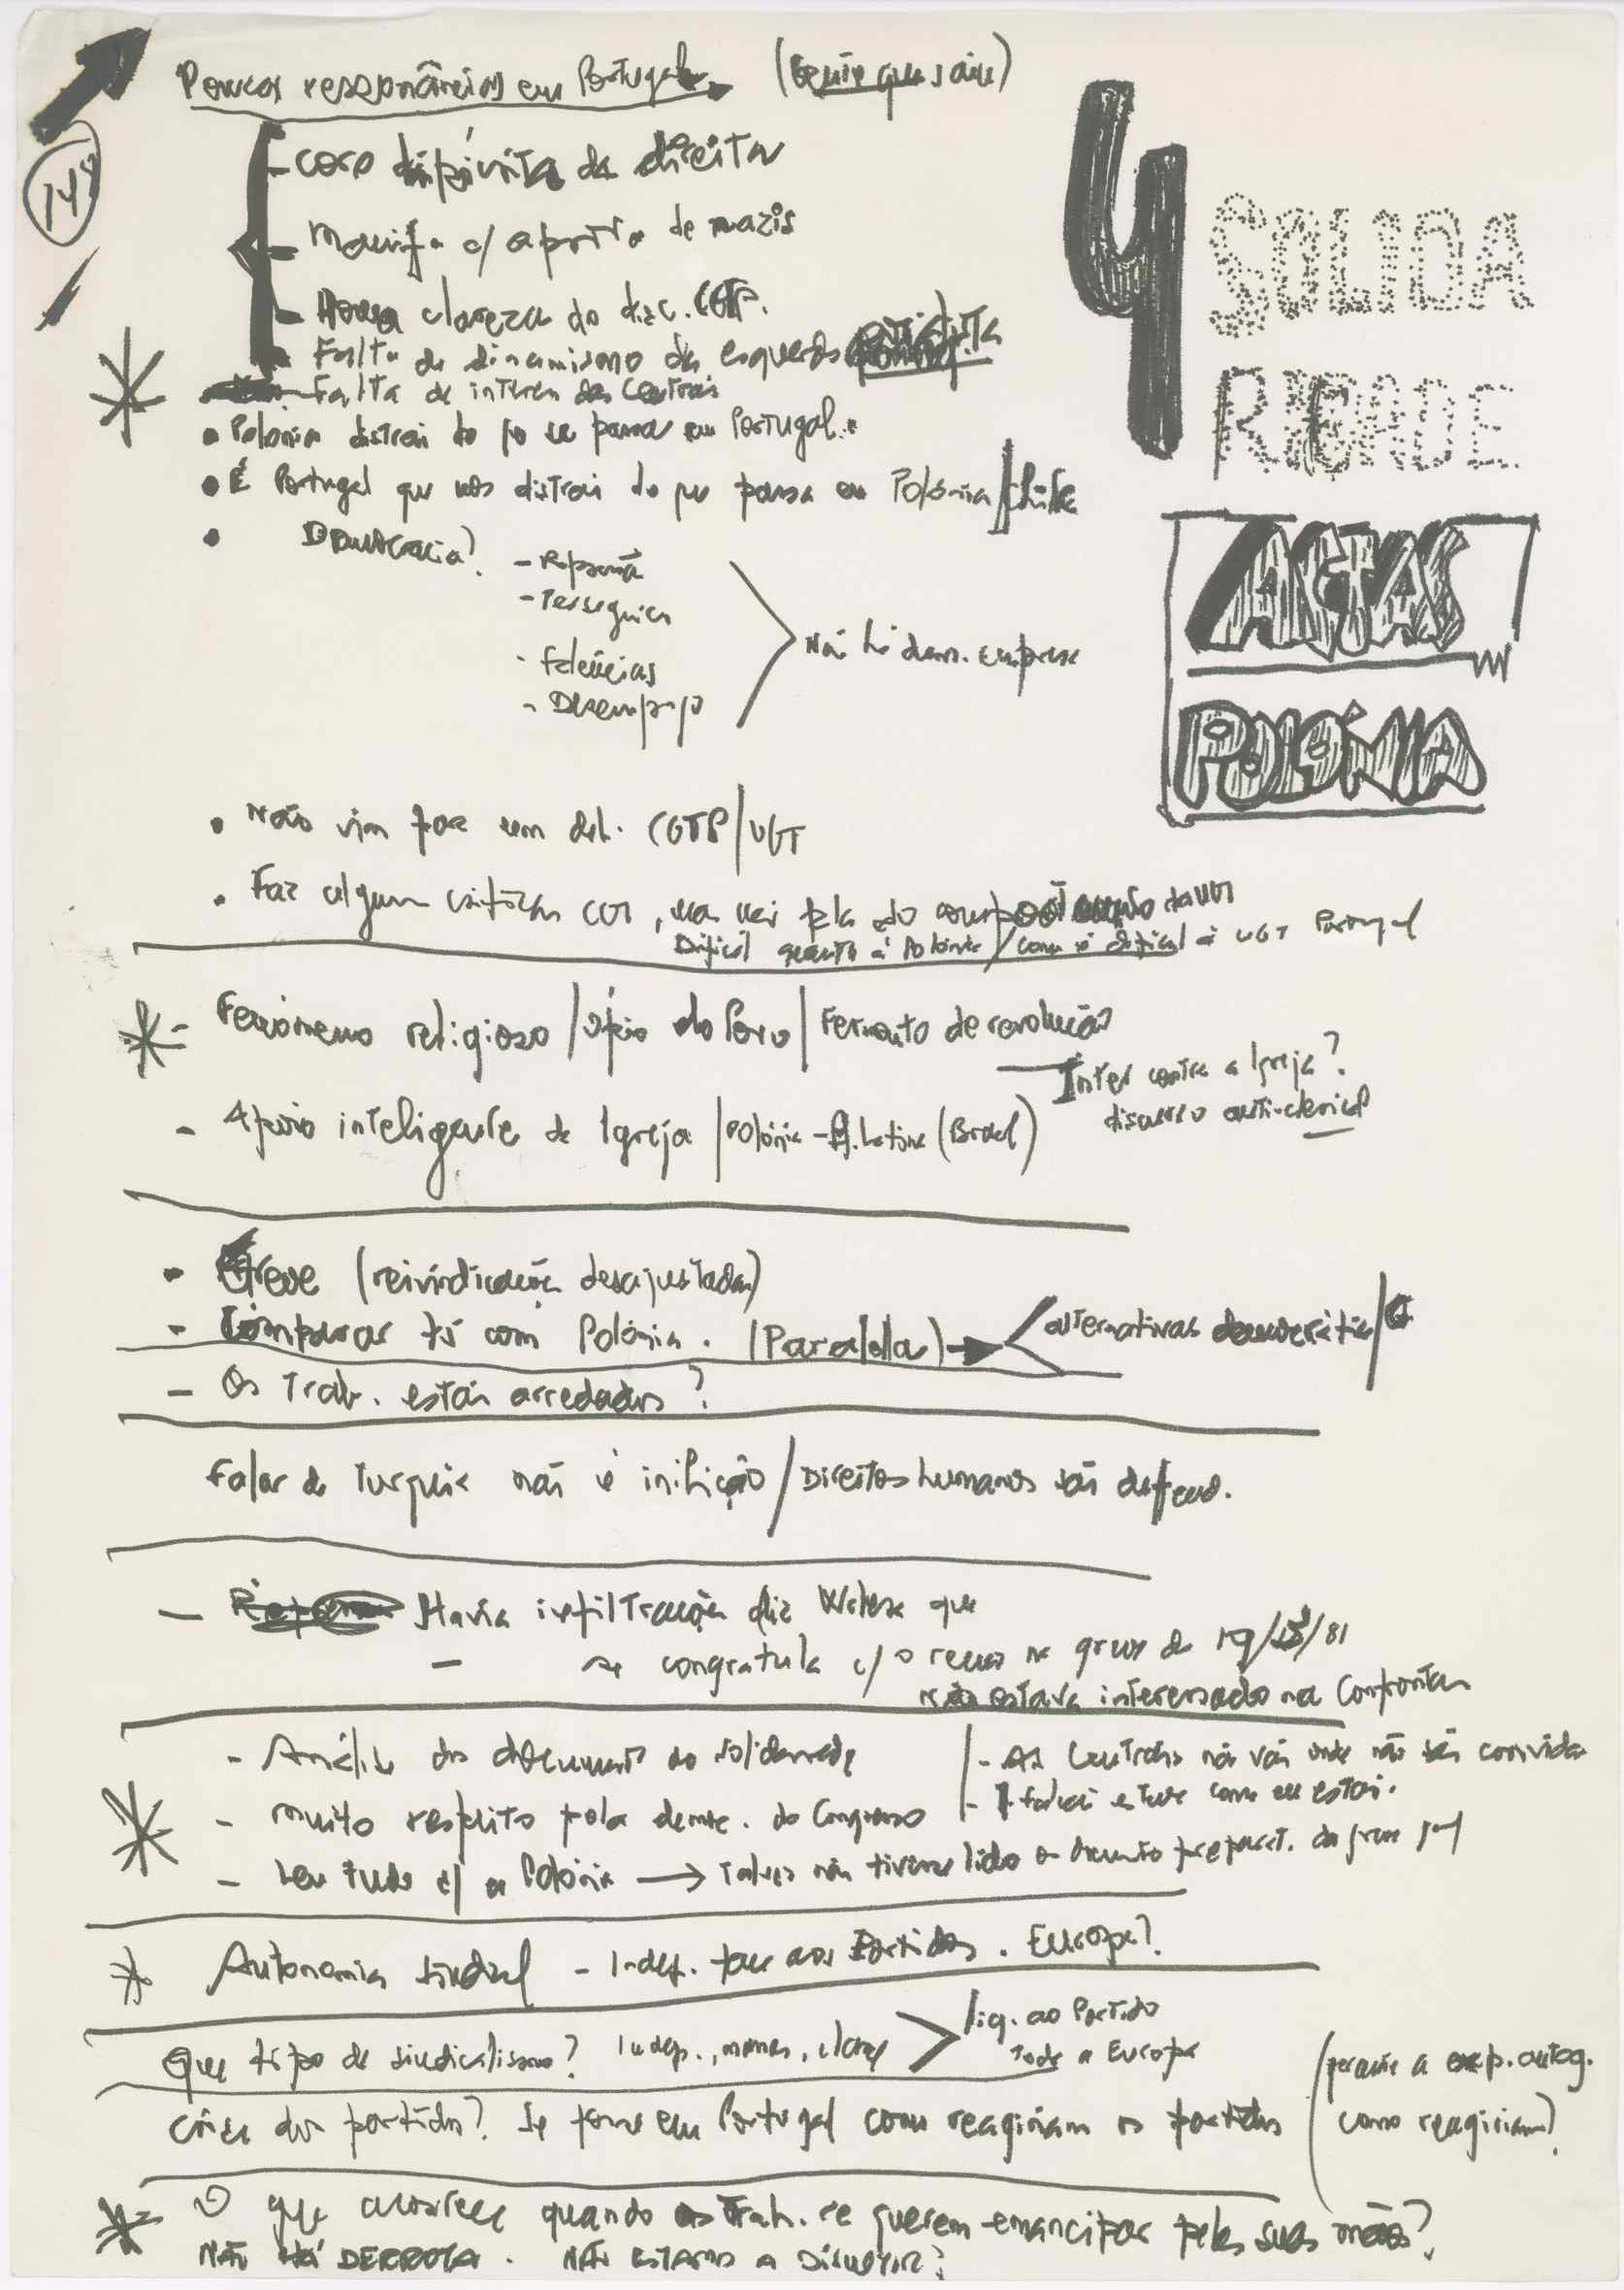 Poucas ressonâncias em Portugal
14º
- coro da direita
- Manif. c/ apoio de nazis
- clareza do disc. CGTP.
- Falta de dinamismo da esquerda
- Falta de interes das Centrais
• Polónia distrai do q se passa em Portugal.
• É Portugal que nos distrai do que passa na Polónia /
• Democracia?
- Repressão
- Perseguição
- Falências
- Desemprego
Não há dem. empresa
4 SOLIDA
RIEDADE
ACTAS
POLÓNIA
• Não vim fazer um deb. CGTP/UGT
• Faz algumas críticas CGT, mas vai pelo da UGT
Difícil quanto à Polónia / como é difícil à UGT Portugal
* - Fenómeno religioso / ópio do Povo / Fermento de revolução
Inter contra a Igreja?
discurso anti-clerical
- Apoio inteligente da Igreja / Polónia - A. Latina (Brasil)
- Greve (reivindicação desajustadas)
- Comparar tb com Polónia. (Paralela) alternativas democráticas /
- Os Trab. estão arredados?
Falar da Turquia não é inibição / Direitos humanos são defend.
- Havia infiltração diz Walesa que
- se congratula c/ o recuo na greve de
não estava interessado na Confrontação
- Análise dos documentos do Solidariedade
- Muito respeito pela democ. do Congresso
- Leu tudo s/ a Polónia → Talvez não tivesse lido o documento preparat. da greve
- As Centrais não vão onde não são convidadas
- estive como ele esteve.
* Autonomia sindical - Indep. face aos Partidos. Europa?
Que tipo de sindicalismo? Indep., massas, classe > lig. ao Partido
Toda a Europa
Crise dos partidos? Se fosse em Portugal como reagiriam os partidos
(perante a exp. autog.
como reagiriam?)
* - O que acontece quando os Trab. se querem emancipar pelas suas mãos?
NÃO HÁ DERROTA. NÃO ESTAMOS A DISCUTIR?